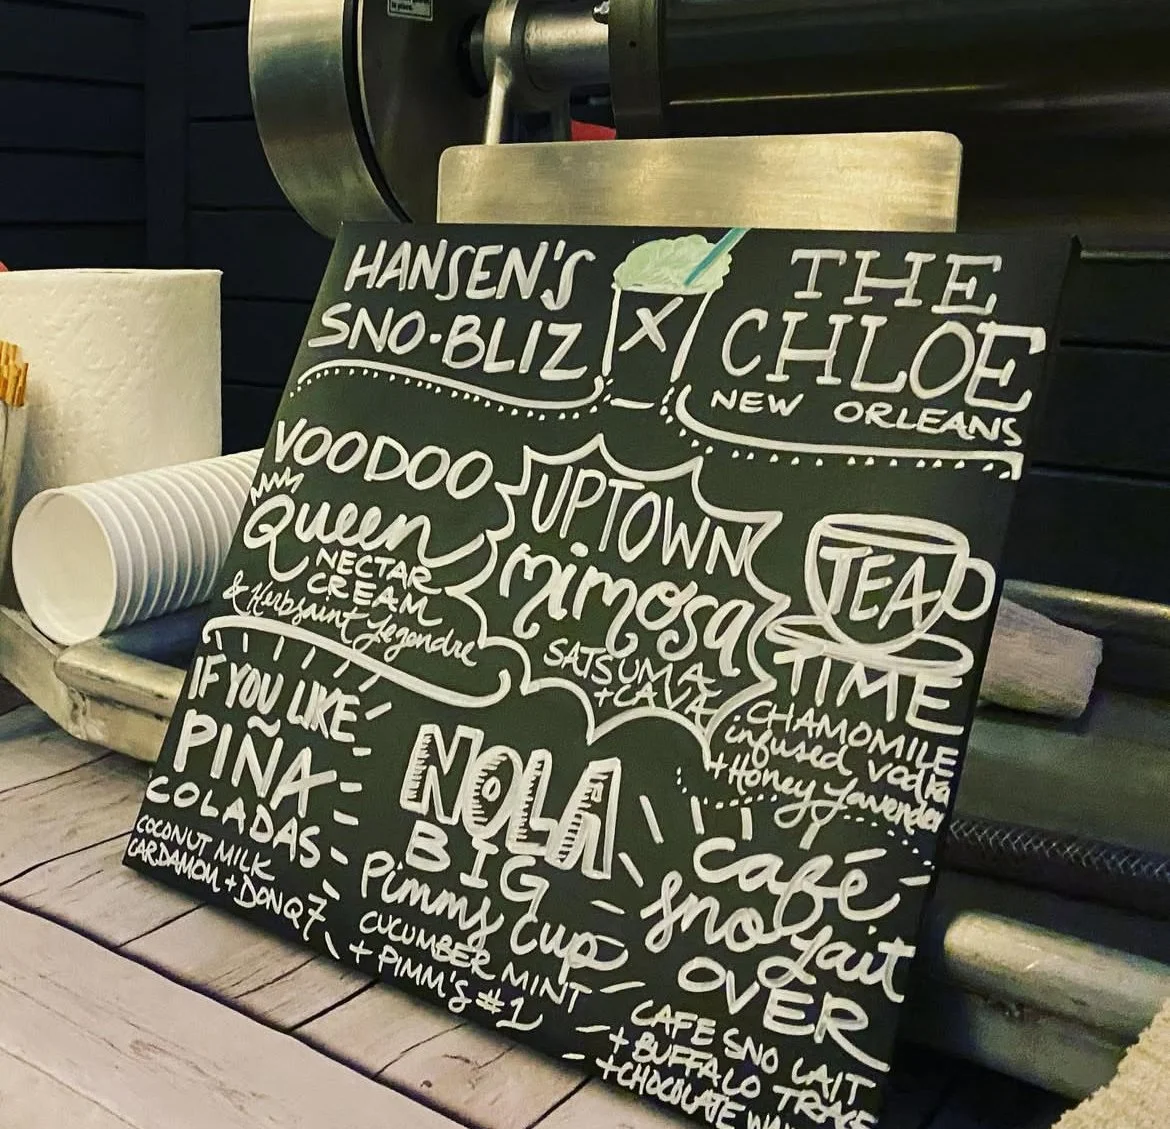 HANSEN'S
SNO·BLIZ
X
THE
CHLOE
NEW ORLEANS
VOODOO
Queen
NECTAR
CREAM
& Herbsaint Legendre
UPTOWN
mimosa
SATSUMA
+CAVA
TEA
TIME
CHAMOMILE
infused vodka
+Honey Lavender
IF YOU LIKE
PIÑA
COLADAS
COCONUT MILK
CARDAMOM + DONQ7
NOLA
BIG
Pimms Cup
CUCUMBER MINT
+ PIMM'S #1
café
sno lait
OVER
CAFE SNO LAIT
+ BUFFALO TRACE
+CHOCOLATE